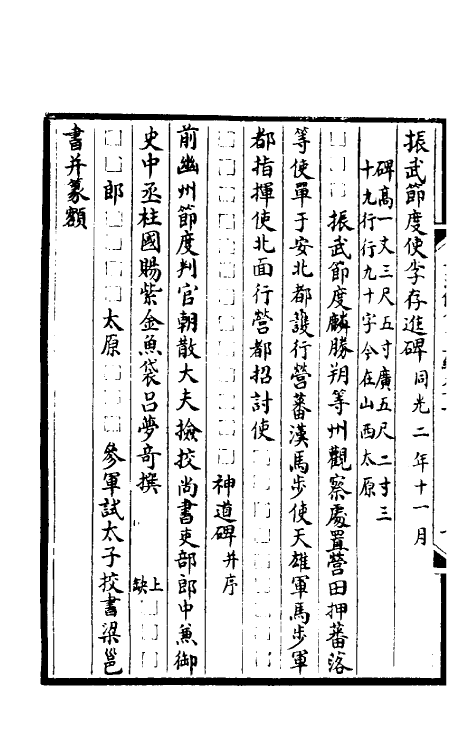 振武節度使李存進碑 同光二年十一月
碑高一丈三尺五寸廣五尺二寸三
十九行行九十字今在山西太原
□□□振武節度麟勝朔等州觀察處置營田押蕃落
等使單于安北都護行營蕃漢馬步使天雄軍馬步軍
都指揮使北面行營都招討使□□□□□□□□
□□□□□□□□□□□□神道碑并序
前幽州節度判官朝散大夫撿挍尚書吏部郎中兼御
史中丞柱國賜紫金魚袋呂夢奇撰 上缺□□□
□□郎□□□□太原□□□□參軍試太子挍書梁邕
書并篆額